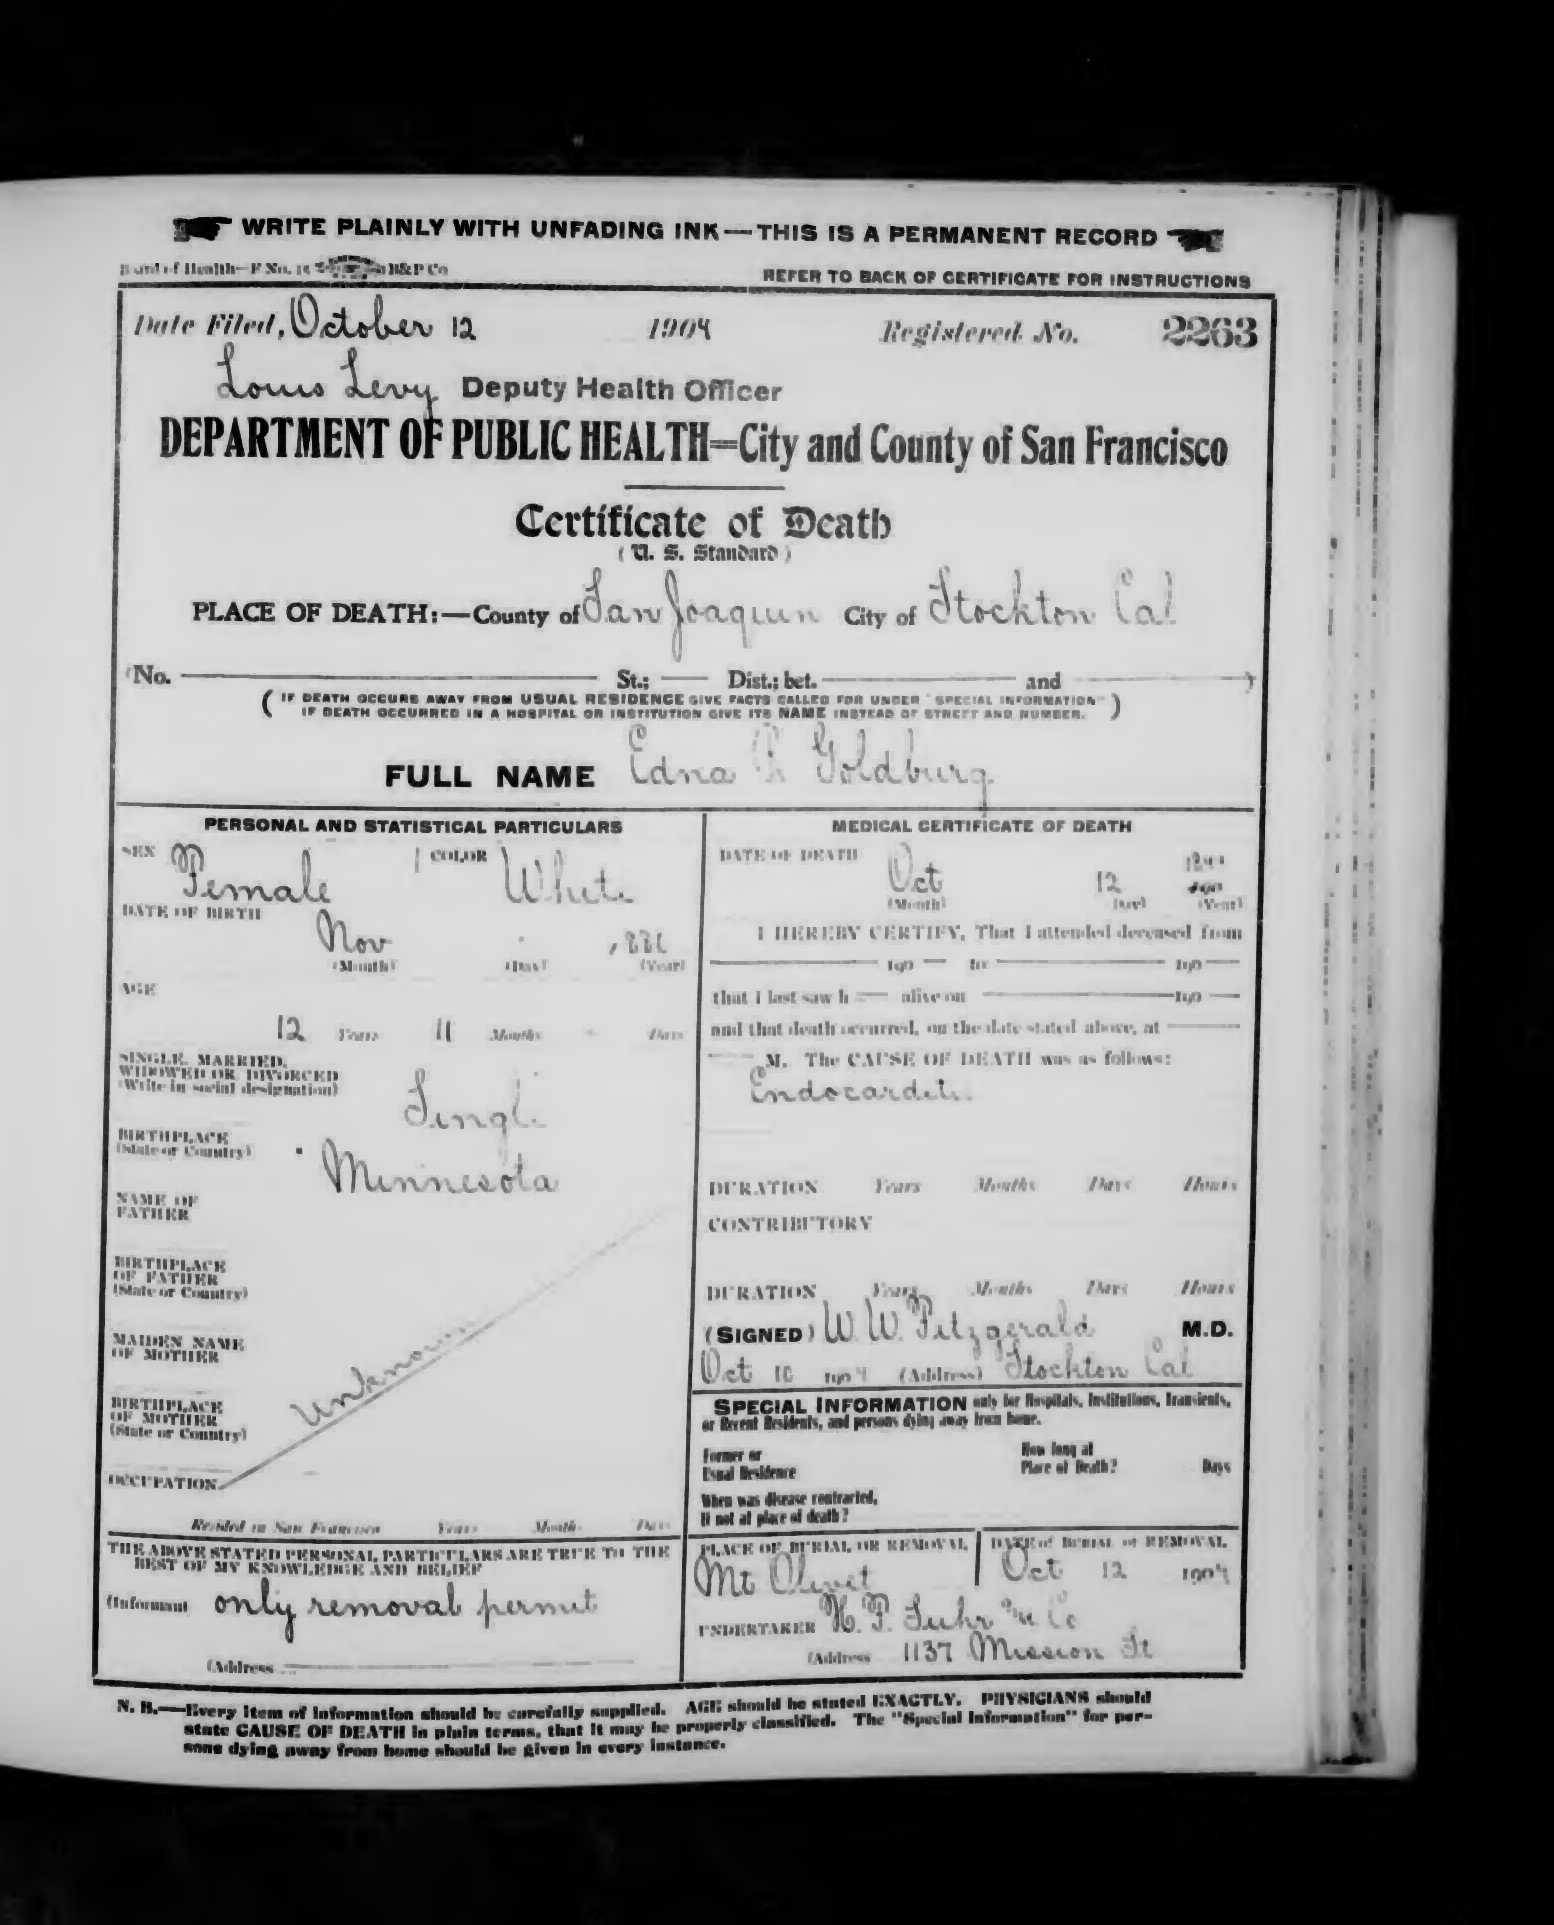 WRITE PLAINLY WITH UNFADING INK—THIS IS A PERMANENT RECORD
Board of Health—F No. 15 B&P Co
REFER TO BACK OF CERTIFICATE FOR INSTRUCTIONS
Date Filed, October 12 1904 Registered No. 2263
Louis Levy Deputy Health Officer
DEPARTMENT OF PUBLIC HEALTH=City and County of San Francisco
Certificate of Death
(U. S. Standard)
PLACE OF DEATH:—County of San Joaquin City of Stockton Cal
(No. St.; Dist.; bet. and )
(IF DEATH OCCURS AWAY FROM USUAL RESIDENCE GIVE FACTS CALLED FOR UNDER "SPECIAL INFORMATION"
IF DEATH OCCURRED IN A HOSPITAL OR INSTITUTION GIVE ITS NAME INSTEAD OF STREET AND NUMBER.)
FULL NAME Edna Goldburg
PERSONAL AND STATISTICAL PARTICULARS
SEX Female COLOR White
DATE OF BIRTH Nov
(Month) (Day) (Year)
AGE
12 Years 11 Months Days
SINGLE, MARRIED,
WIDOWED OR DIVORCED
(Write in social designation) Single
BIRTHPLACE
(State or Country) Minnesota
NAME OF
FATHER
BIRTHPLACE
OF FATHER
(State or Country)
MAIDEN NAME
OF MOTHER
Unknown
BIRTHPLACE
OF MOTHER
(State or Country)
OCCUPATION
Resided in San Francisco Years Months Days
THE ABOVE STATED PERSONAL PARTICULARS ARE TRUE TO THE
BEST OF MY KNOWLEDGE AND BELIEF
(Informant only removal permit
(Address
MEDICAL CERTIFICATE OF DEATH
DATE OF DEATH
Oct 12 190
(Month) (Day) (Year)
I HEREBY CERTIFY, That I attended deceased from
190 to 190
that I last saw h alive on 190
and that death occurred, on the date stated above, at
M. The CAUSE OF DEATH was as follows:
Endocarditis
DURATION Years Months Days Hours
CONTRIBUTORY
DURATION Years Months Days Hours
(SIGNED) W. W. Fitzgerald M.D.
Oct 10 1904 (Address) Stockton Cal
SPECIAL INFORMATION only for Hospitals, Institutions, Transients,
or Recent Residents, and persons dying away from home.
Former or
Usual Residence
How long at
Place of Death? Days
When was disease contracted,
If not at place of death?
PLACE OF BURIAL OR REMOVAL
Mt Olivet
DATE of BURIAL or REMOVAL
Oct 12 1904
UNDERTAKER H. F. Suhr & Co
(Address 1137 Mission St
N. B.—Every item of information should be carefully supplied. AGE should be stated EXACTLY. PHYSICIANS should
state CAUSE OF DEATH in plain terms, that it may be properly classified. The "Special Information" for per-
sons dying away from home should be given in every instance.